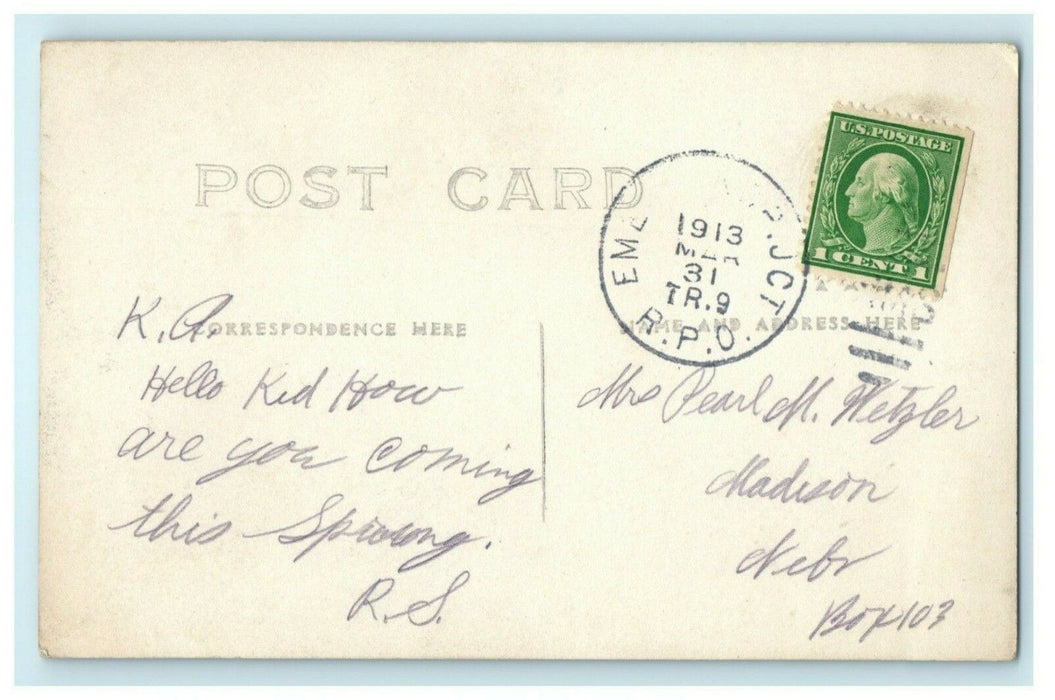 POST CARD
U.S. POSTAGE
1 CENT 1
JCT.
1913
MAR
31
TR.9
R.P.O.
CORRESPONDENCE HERE
NAME AND ADDRESS HERE
K. A.
Hello Kid How
are you coming
this Spring.
R.S.
Mrs Pearl M. Wetzler
Madison
Nebr
Box 103